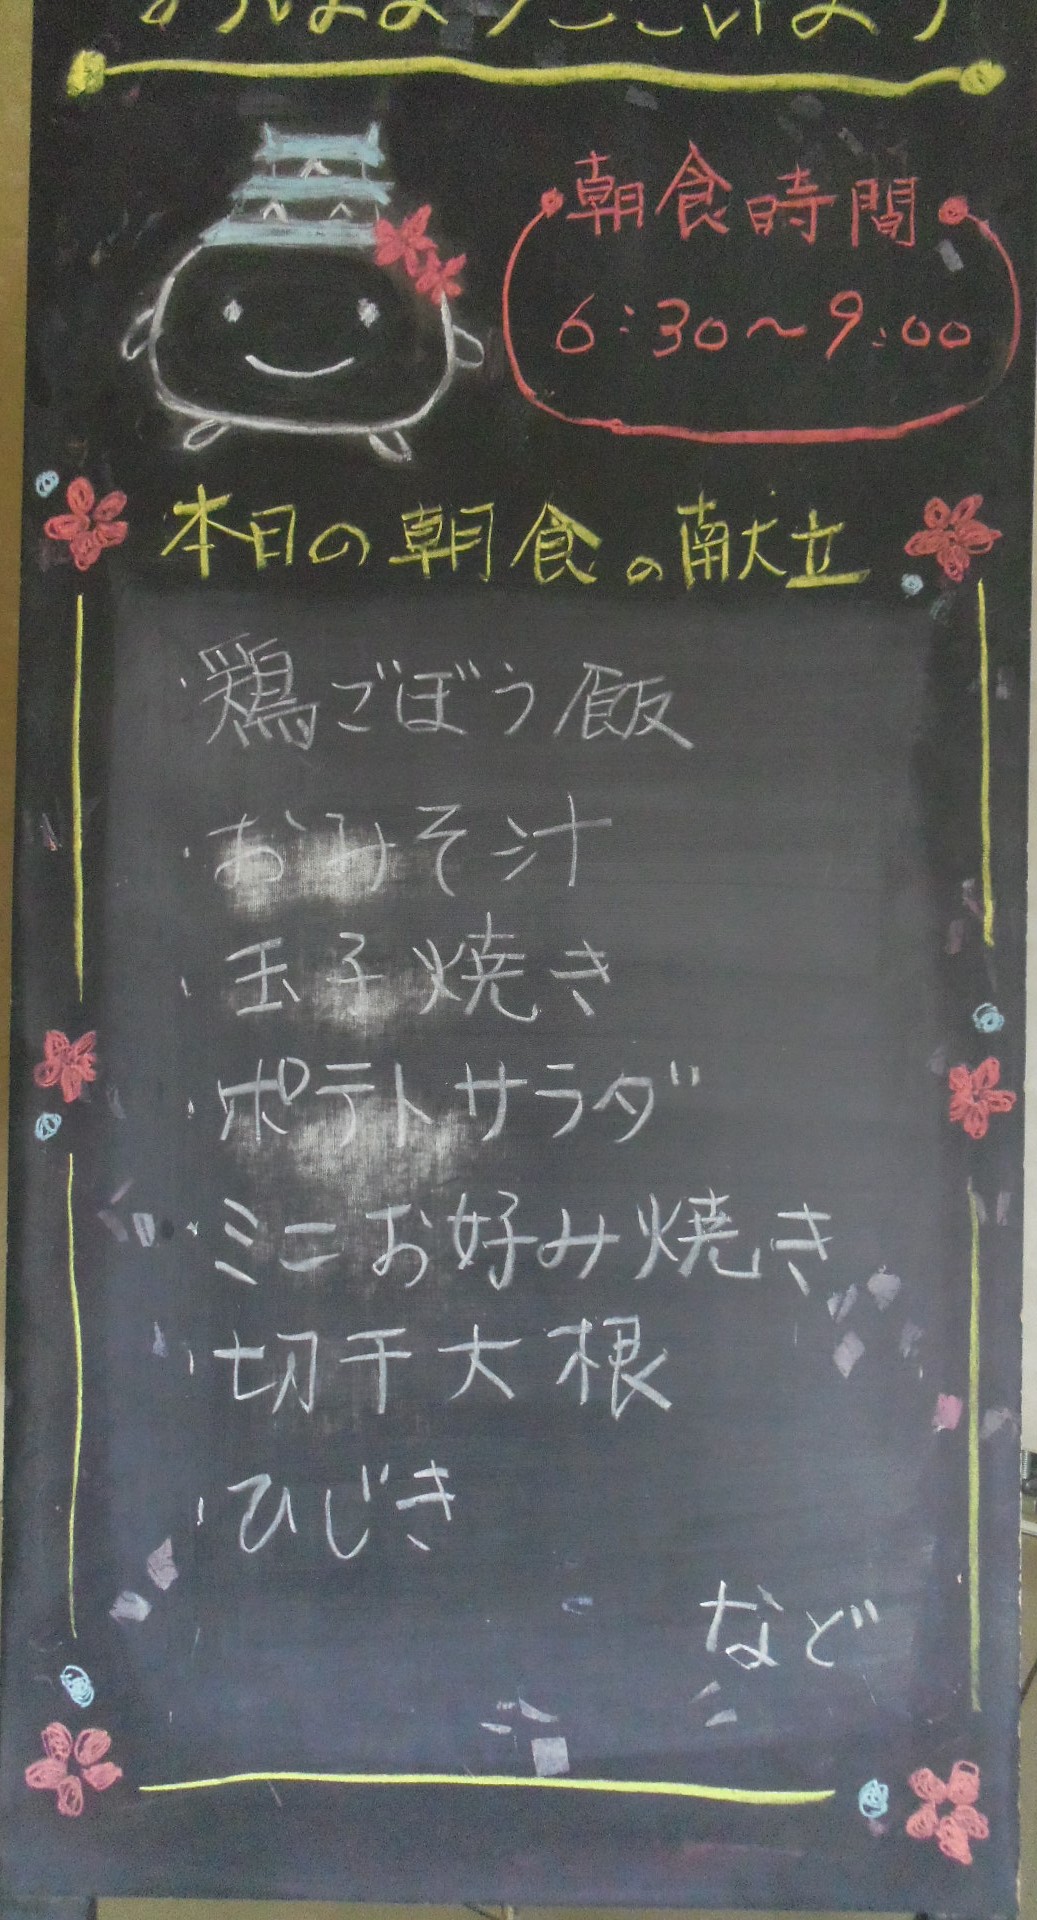 おはようございます
朝食時間
6:30~9:00
本日の朝食の献立
・鶏ごぼう飯
・おみそ汁
・玉子焼き
・ポテトサラダ
・ミニお好み焼き
・切干大根
・ひじき
など